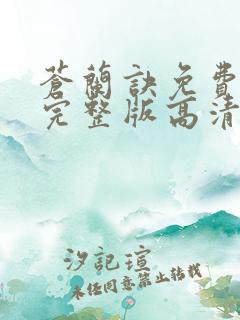 蒼蘭訣免費
完整版高清
汐記瑄
未经同意禁止转载